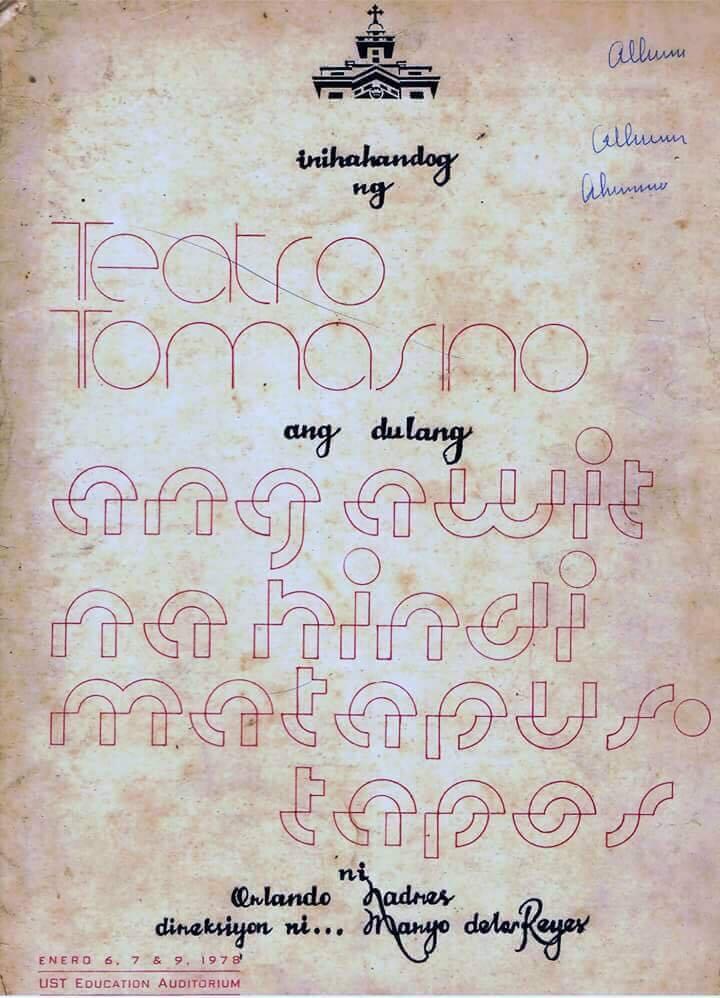 Album
Album
inihahandog
ng
Teatro
Tomasino
ang dulang
ang awit
na hindi
matapus.
tapos
ni
Orlando Nadres
direksiyon ni... Maryo delos Reyes
ENERO 6, 7 & 9, 1978
UST EDUCATION AUDITORIUM